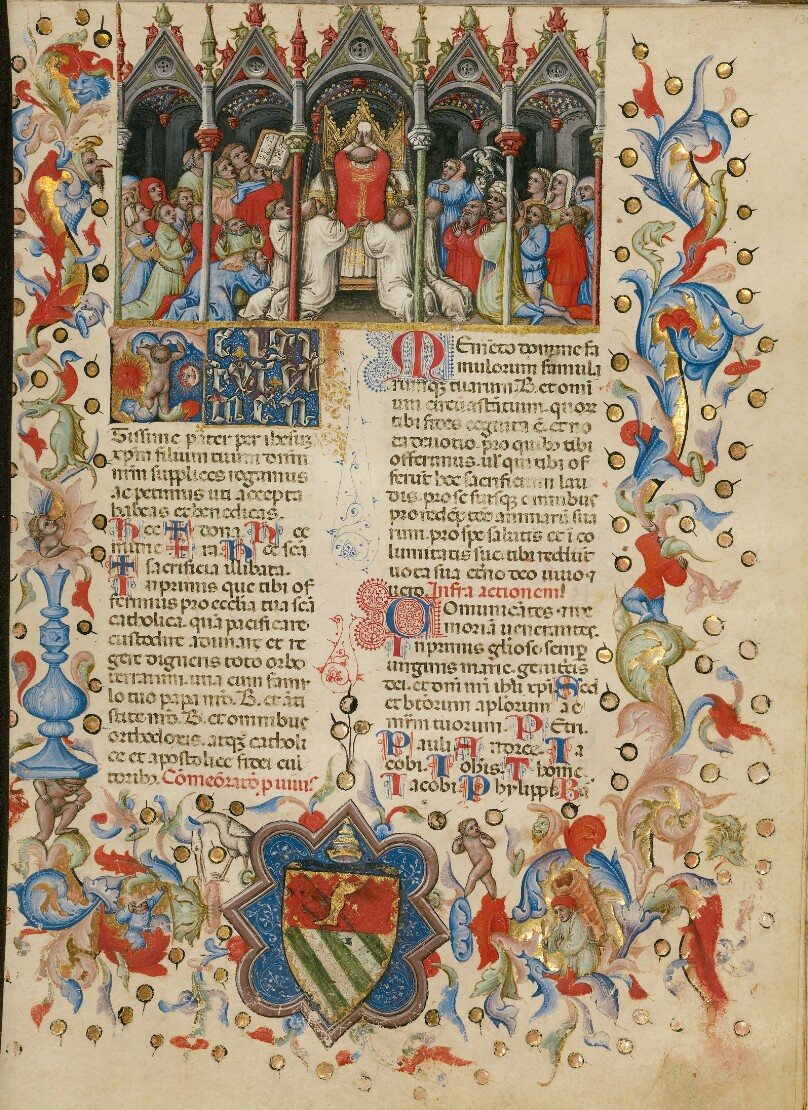 TE igi
tur cle
men
tissime pater per ihesum
xpm filium tuum dnm
nrm supplices rogamus
ac petimus uti accepta
habeas et benedicas.
hec ✝ dona. hec
munera ✝ hec scā
✝ sacrificia illibata.
Inprimis que tibi of
ferimus pro ecclia tua scā
catholica. quā pacificare
custodire adunare et re
gere digneris toto orbe
terrarum. una cum famu
lo tuo papa nrō. B. et āti
stite nrō. B. et omnibus
orthodoxis. atq̨ catholi
ce et apostolice fidei cul
toribȝ. Cōmeōratō p uiuis
Memēto domine fa
mulorum famula
rumq̨ tuarum B. et omī
um circū astātium. quor̄
tibi fides cognita ē. et no
ta deuotio. pro quibȝ tibi
offerimus. ul' qui tibi of
ferūt hoc sacrificium lau
dis. pro se suisq̨ omnibus
pro redēptōe animarū sua
rum. pro spe salutis et ī co
lumitatis sue. tibi reddūt
uota sua etno deo uiuo ⁊
uero. Infra actionem
Comunicātes. ⁊ me
moriā uenerantes.
Inprimis gliose semp
uirginis marie. genitris
dei. et dnī nrī ihū xpī Sed
et btorum aplorum ac
mrm tuorum. Petri.
Pauli. Andree. Ia
cobi. Iohis. Thome.
Iacobi. Phylippi. Ba